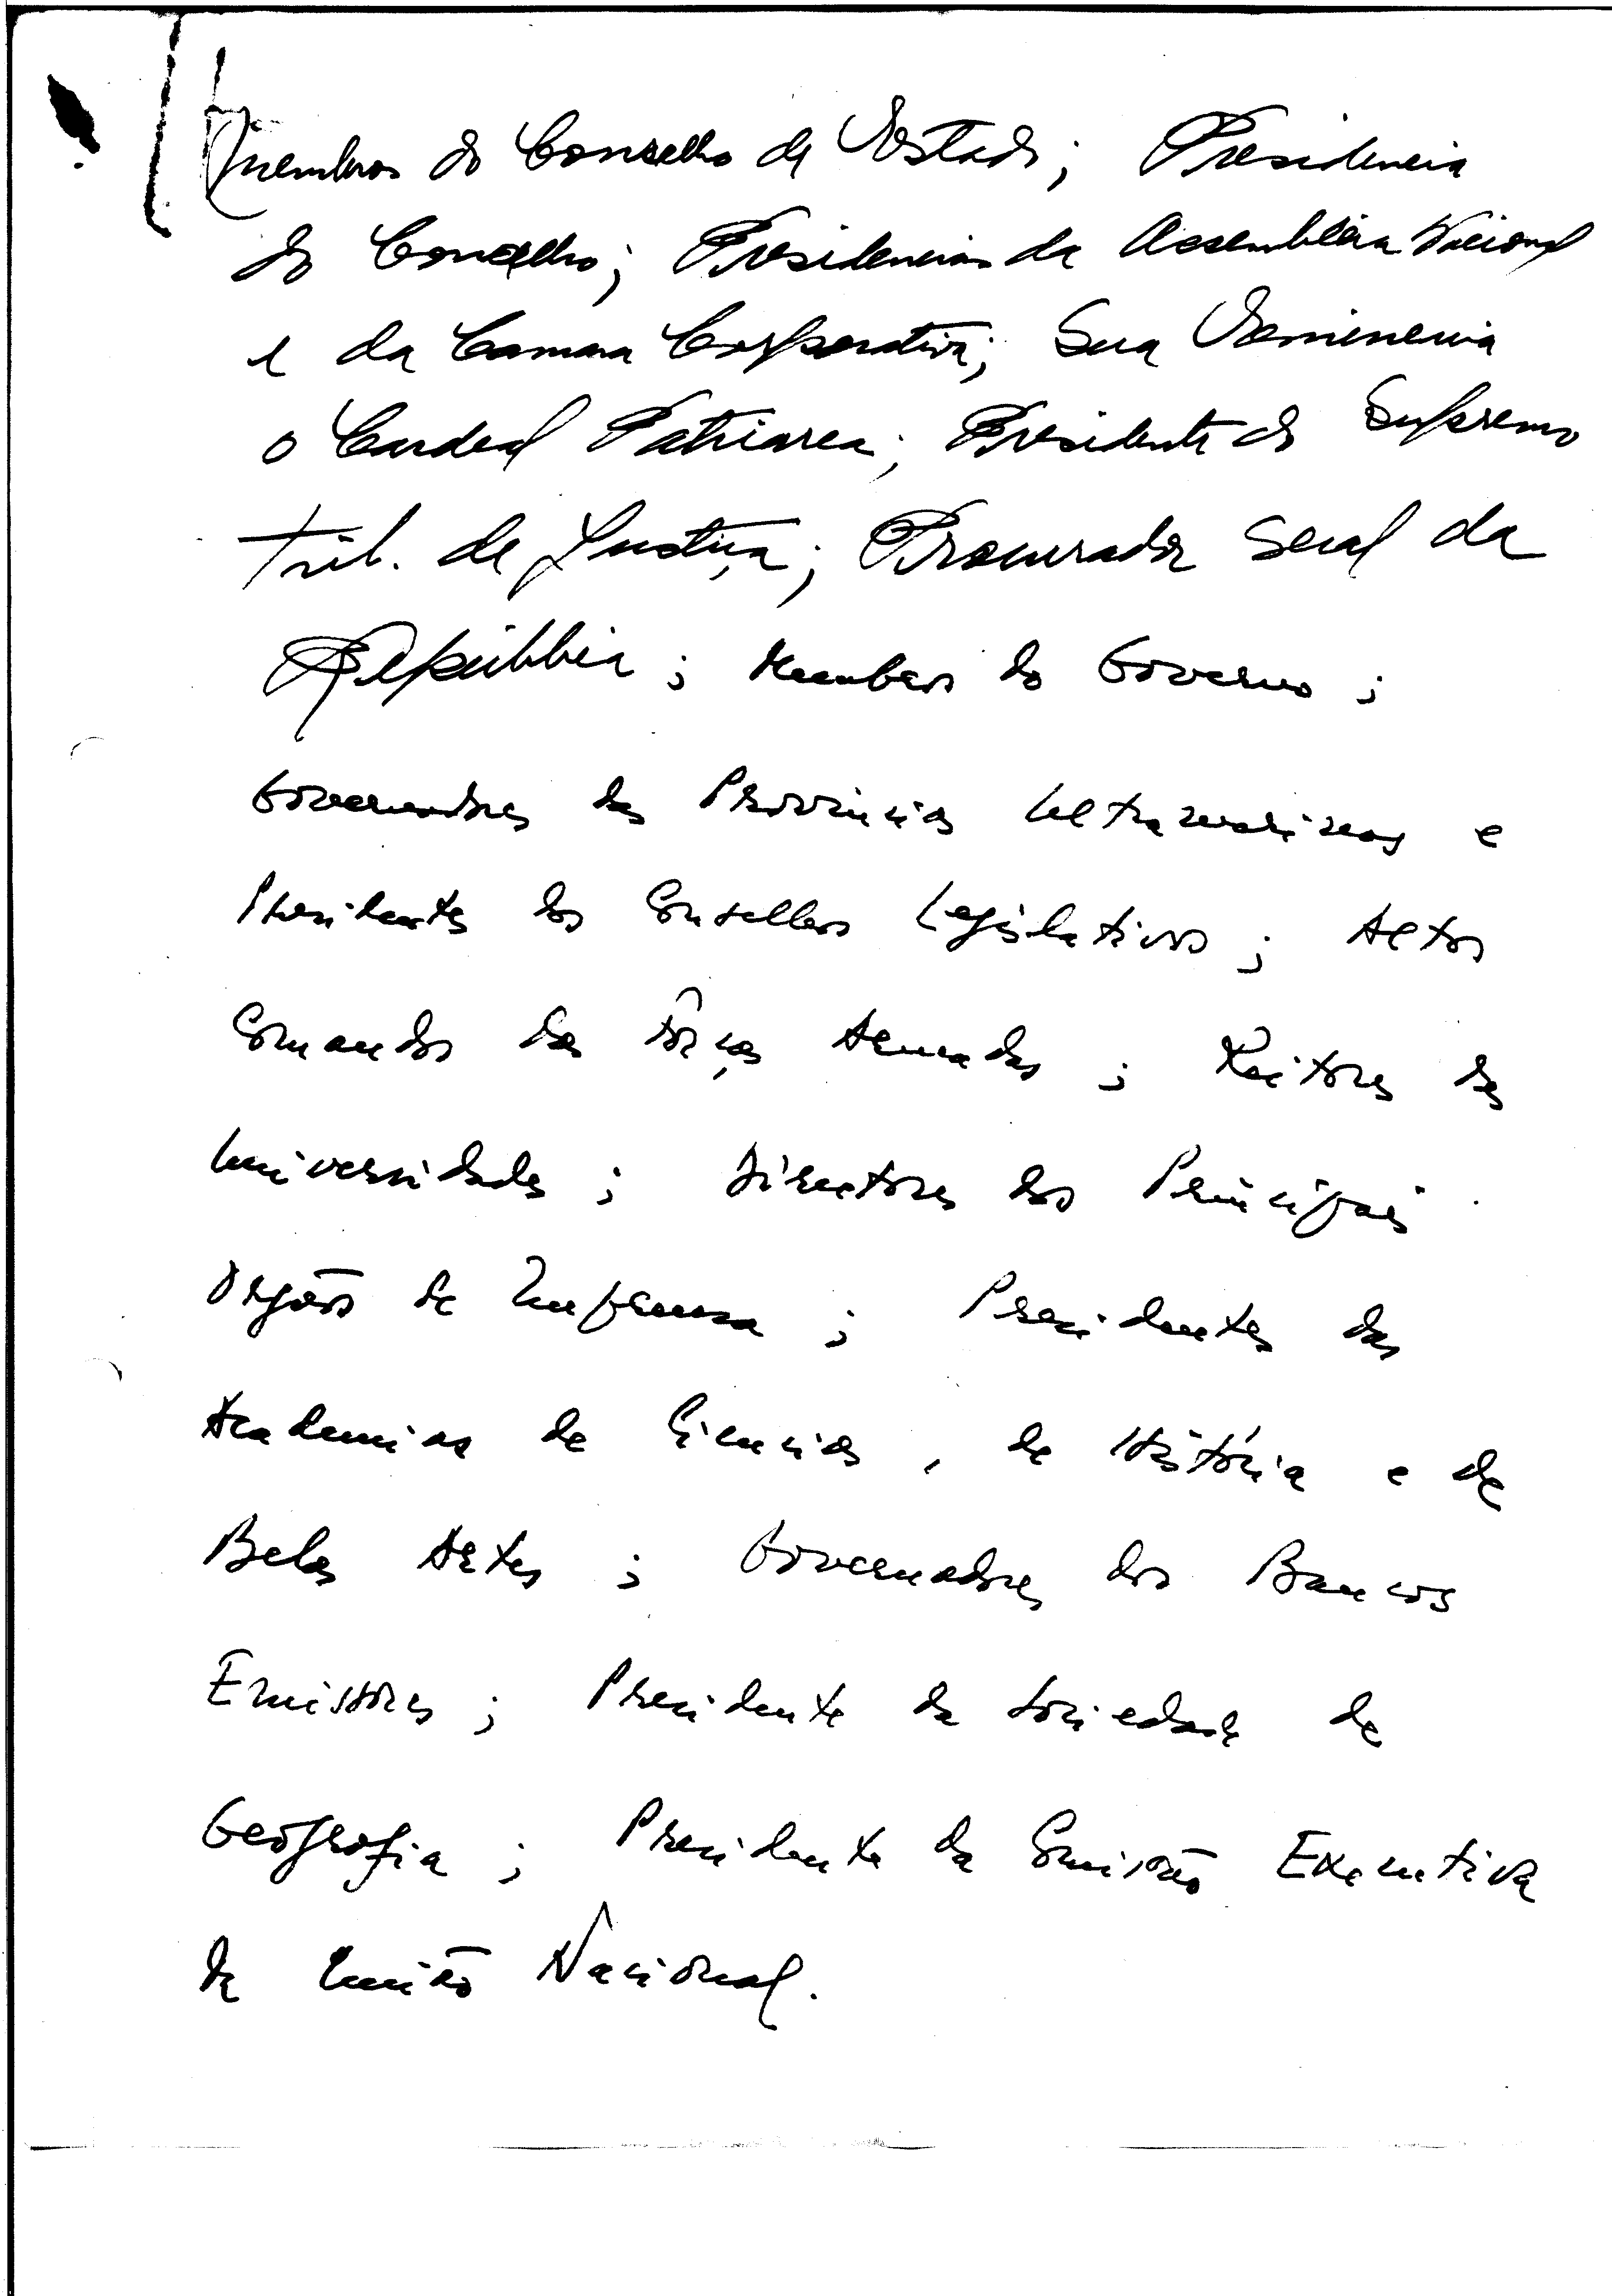 Membros do Conselho de Estado; Presidencia
do Conselho; Presidencias da Assembleia Nacional
e da Camara Corporativa; Sua Eminencia
o Cardeal Patriarca; Presidente do Supremo
Trib. de Justiça; Procurador Geral da
República; Membros do Governo;
Governadores das Provincias Ultramarinas e
Presidentes dos Conselhos Legislativos; Altos
Comandos das Fôrças Armadas; Reitores das
Universidades; Directores dos Principais
Orgãos de Imprensa; Presidentes das
Academias de Ciencias, de História e de
Belas Artes; Governadores dos Bancos
Emissores; Presidente da Sociedade de
Geografia; Presidente da Comissão Executiva
da União Nacional.